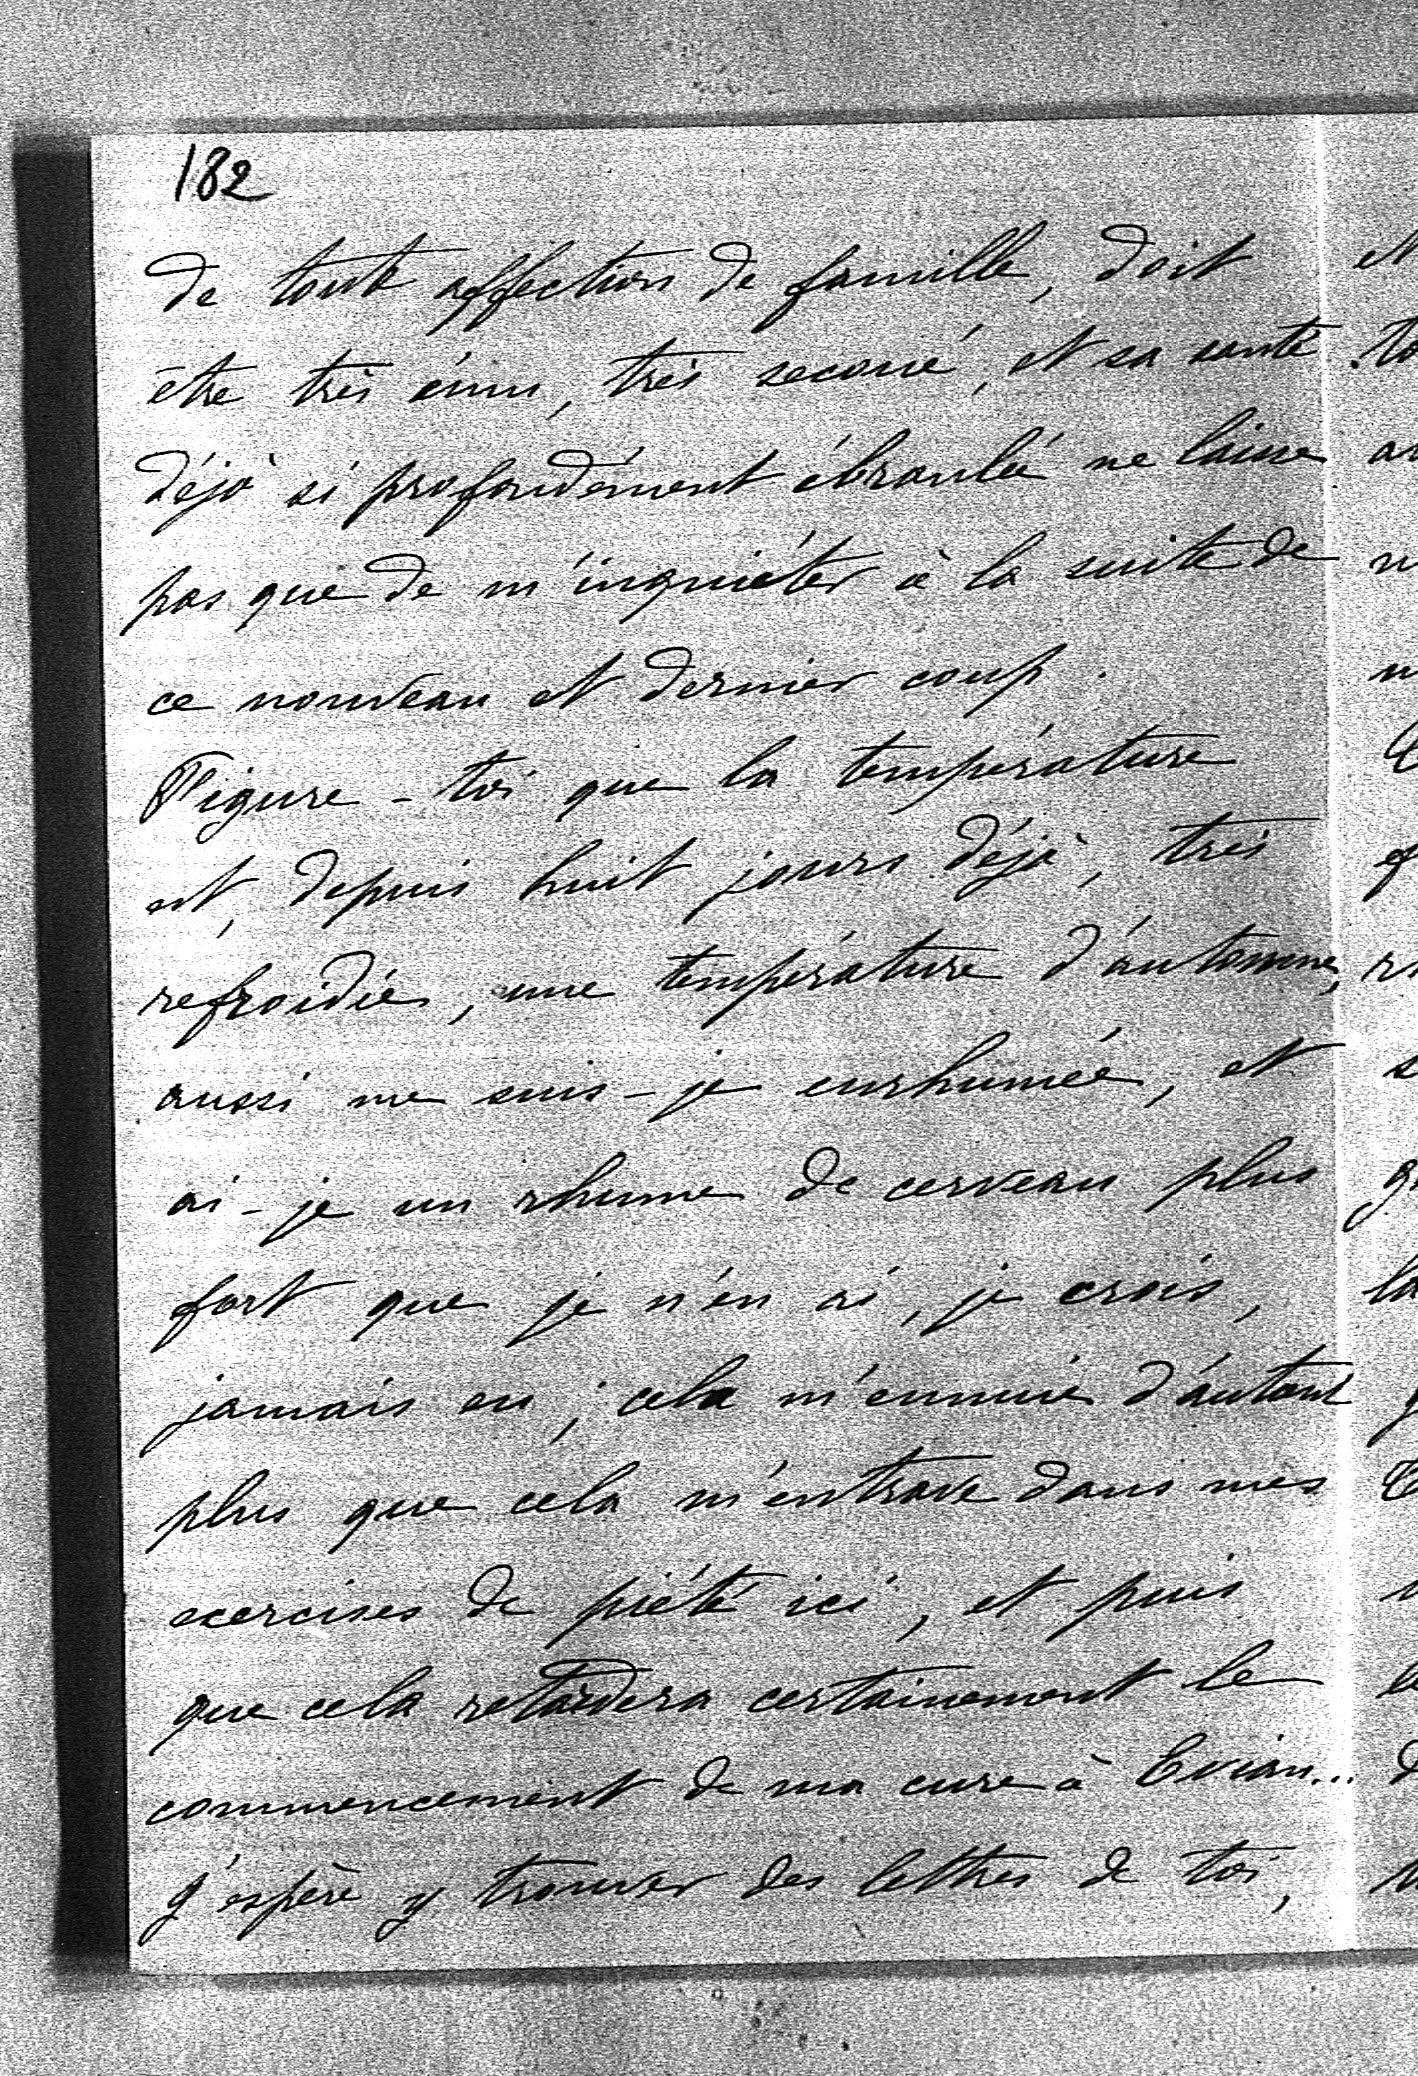 182
de toute affection de famille, doit
être très ému, très secoué, et sa santé
déjà si profondément ébranlée ne laisse
pas que de m'inquiéter à la suite de
ce nouveau et dernier coup.
Figure-toi que la température
est, depuis huit jours déjà, très
refroidie, une température d'automne,
aussi me suis-je enrhumée, et
ai-je un rhume de cerveau plus
fort que je n'en ai, je crois,
jamais eu; cela m'ennuie d'autant
plus que cela m'entrave dans mes
exercises de piété ici, et puis
que cela retardera certainement le
commencement de ma cure à Evian...
J'espère y trouver des lettres de toi,